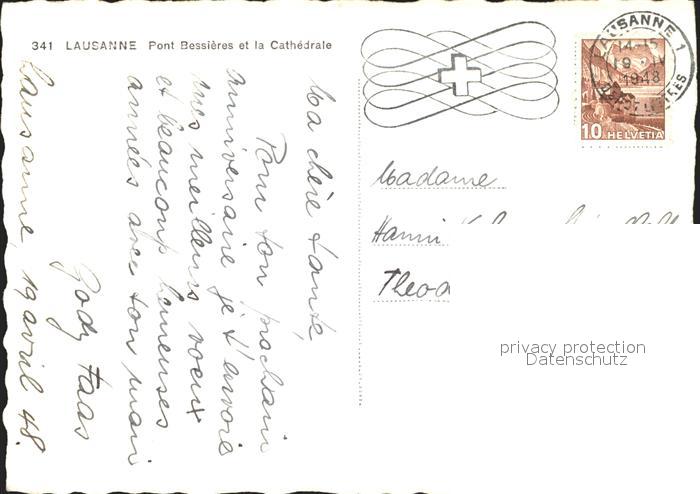 341 LAUSANNE Pont Bessières et la Cathédrale
LAUSANNE 1
14-15
19 IV
1948
10 HELVETIA
Ma chère tante,
Pour ton prochain
anniversaire je t'envoie
mes meilleurs voeux
et beaucoup heureuses
années avec ton mari
Gody Faas
Lausanne, 19 avril 48.
Madame
Hanni
Theod
privacy protection
Datenschutz